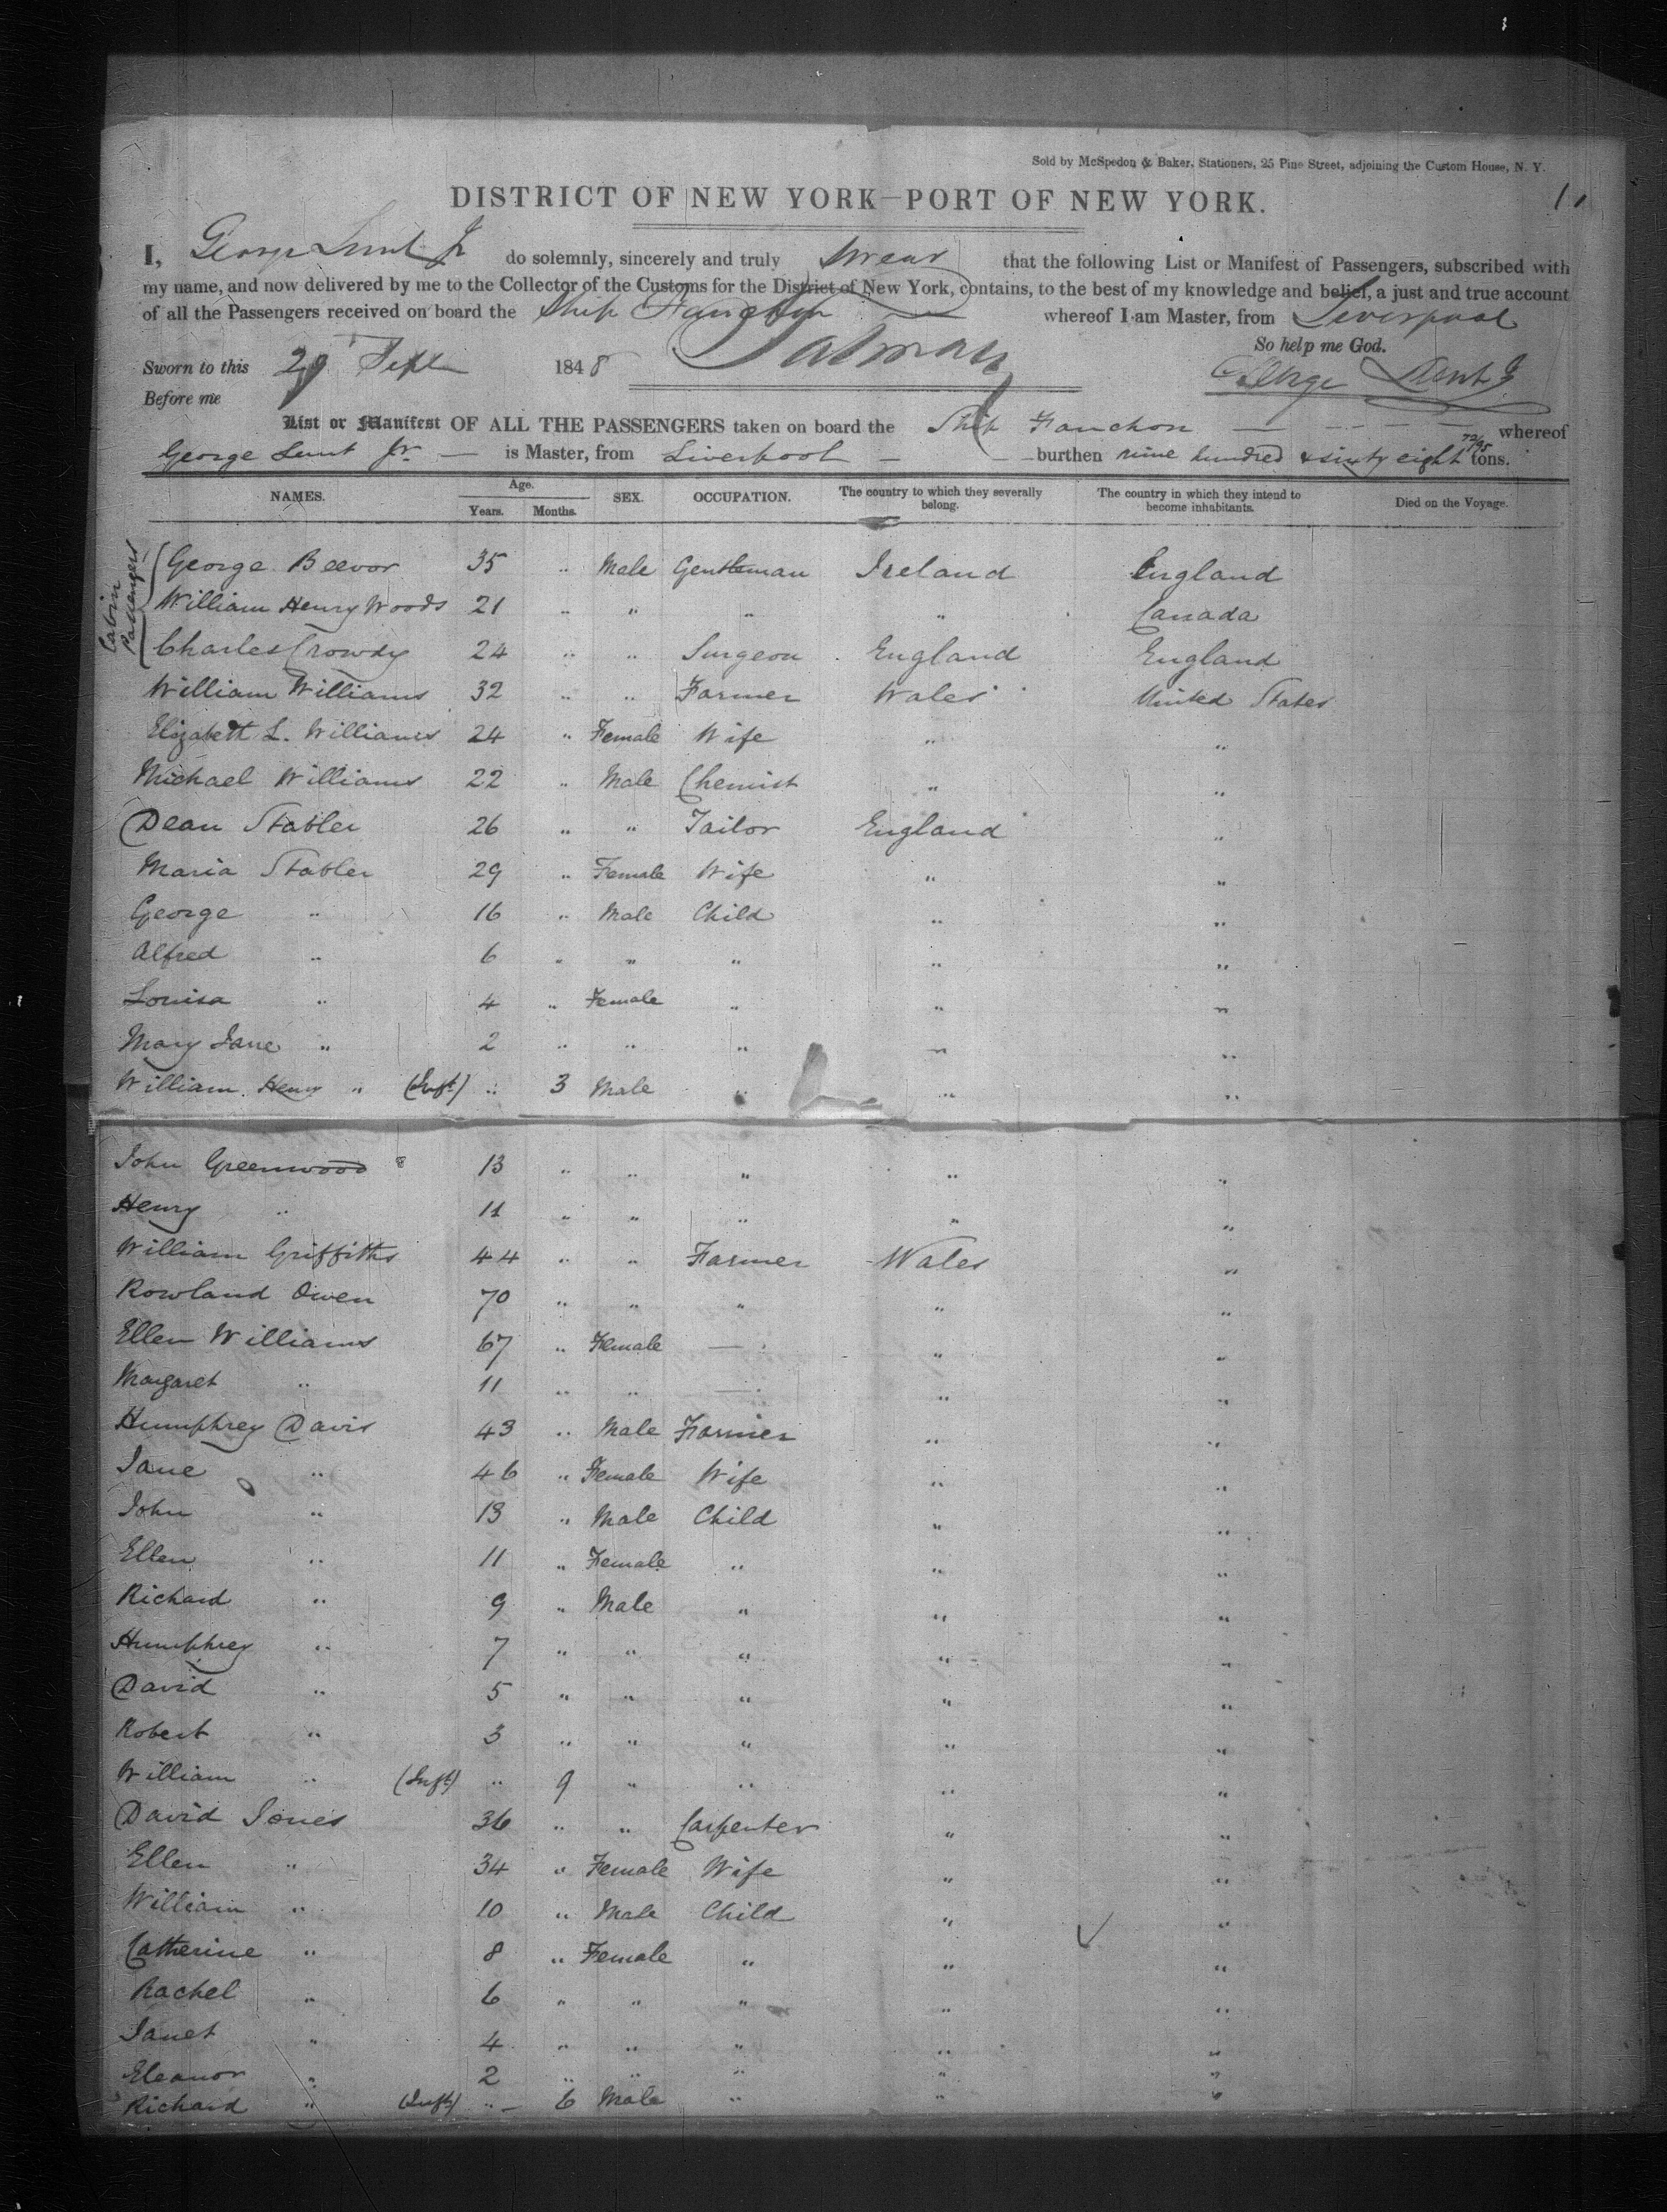 Sold by McSpedon & Baker, Stationers, 25 Pine Street, adjoining the Custom House, N. Y.
11
DISTRICT OF NEW YORK—PORT OF NEW YORK.
I, George Lunt Jr do solemnly, sincerely and truly swear that the following List or Manifest of Passengers, subscribed with
my name, and now delivered by me to the Collector of the Customs for the District of New York, contains, to the best of my knowledge and belief, a just and true account
of all the Passengers received on board the Ship Fanchon whereof I am Master, from Liverpool
So help me God.
Sworn to this 29 Sept 1848 George Lunt Jr
Before me
List or Manifest OF ALL THE PASSENGERS taken on board the Ship Fanchon — — — — — whereof
George Lunt Jr. — is Master, from Liverpool — — burthen nine hundred & sixty eight 72/95 tons.
NAMES. Age. Years. Months. SEX. OCCUPATION. The country to which they severally belong. The country in which they intend to become inhabitants. Died on the Voyage.
Cabin Passengers
George Beevor 35 " Male Gentleman Ireland England
William Henry Woods 21 " " " " Canada
Charles Crowdy 24 " " Surgeon England England
William Williams 32 " " Farmer Wales United States
Elizabeth L. Williams 24 " Female Wife " "
Michael Williams 22 " Male Chemist " "
Dean Stabler 26 " " Tailor England "
Maria Stabler 29 " Female Wife " "
George " 16 " Male Child " "
Alfred " 6 " " " " "
Louisa " 4 " Female " " "
Mary Jane " 2 " " " " "
William Henry " (Inft) " 3 Male " " "
John Greenwood 13 " " " " "
Henry " 11 " " " " "
William Griffiths 44 " " Farmer Wales "
Rowland Owen 70 " " " " "
Ellen Williams 67 " Female — " "
Margaret " 11 " " — " "
Humphrey Davis 43 " Male Farmer " "
Jane " 46 " Female Wife " "
John " 13 " Male Child " "
Ellen " 11 " Female " " "
Richard " 9 " Male " " "
Humphrey " 7 " " " " "
David " 5 " " " " "
Robert " 3 " " " " "
William " (Inft) " 9 " " " "
David Jones 36 " " Carpenter " "
Ellen " 34 " Female Wife " "
William " 10 " Male Child " "
Catherine " 8 " Female " " "
Rachel " 6 " " " " "
Janet " 4 " " " " "
Eleanor " 2 " " " " "
Richard " (Inft) " 6 Male " " "